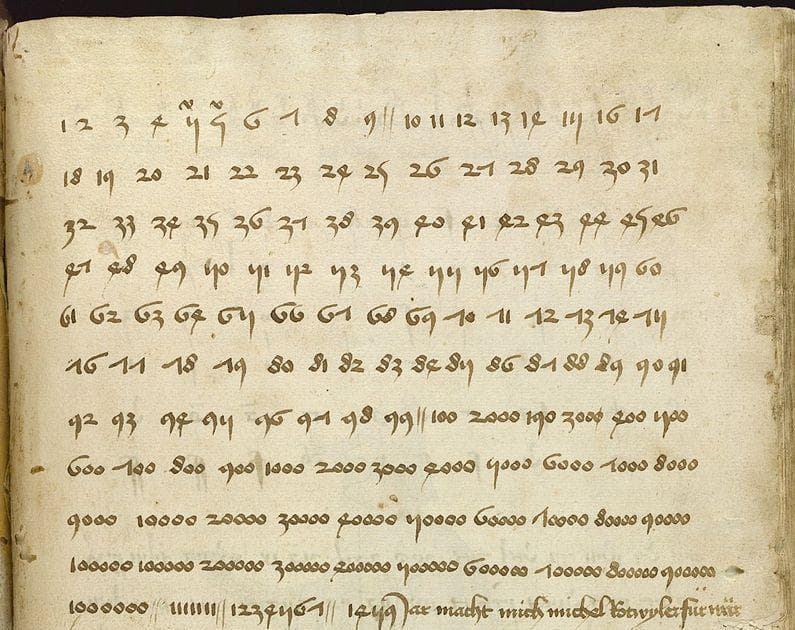 1 2 3 4 5 5 6 7 8 9 // 10 11 12 13 14 15 16 17
18 19 20 21 22 23 24 25 26 27 28 29 30 31
32 33 34 35 36 37 38 39 40 41 42 43 44 45 46
47 48 49 50 51 52 53 54 55 56 57 58 59 60
61 62 63 64 65 66 67 68 69 70 71 72 73 74 75
76 77 78 79 80 81 82 83 84 85 86 87 88 89 90 91
92 93 94 95 96 97 98 99 // 100 2000 190 3000 400 500
600 700 800 900 1000 2000 3000 4000 5000 6000 7000 8000
9000 10000 20000 30000 40000 50000 60000 70000 80000 90000
100000 100000 200000 300000 400000 500000 600000 700000 800000 900000
1000000 // // 1234567 1459) ar macht mich michel Rotwyler für